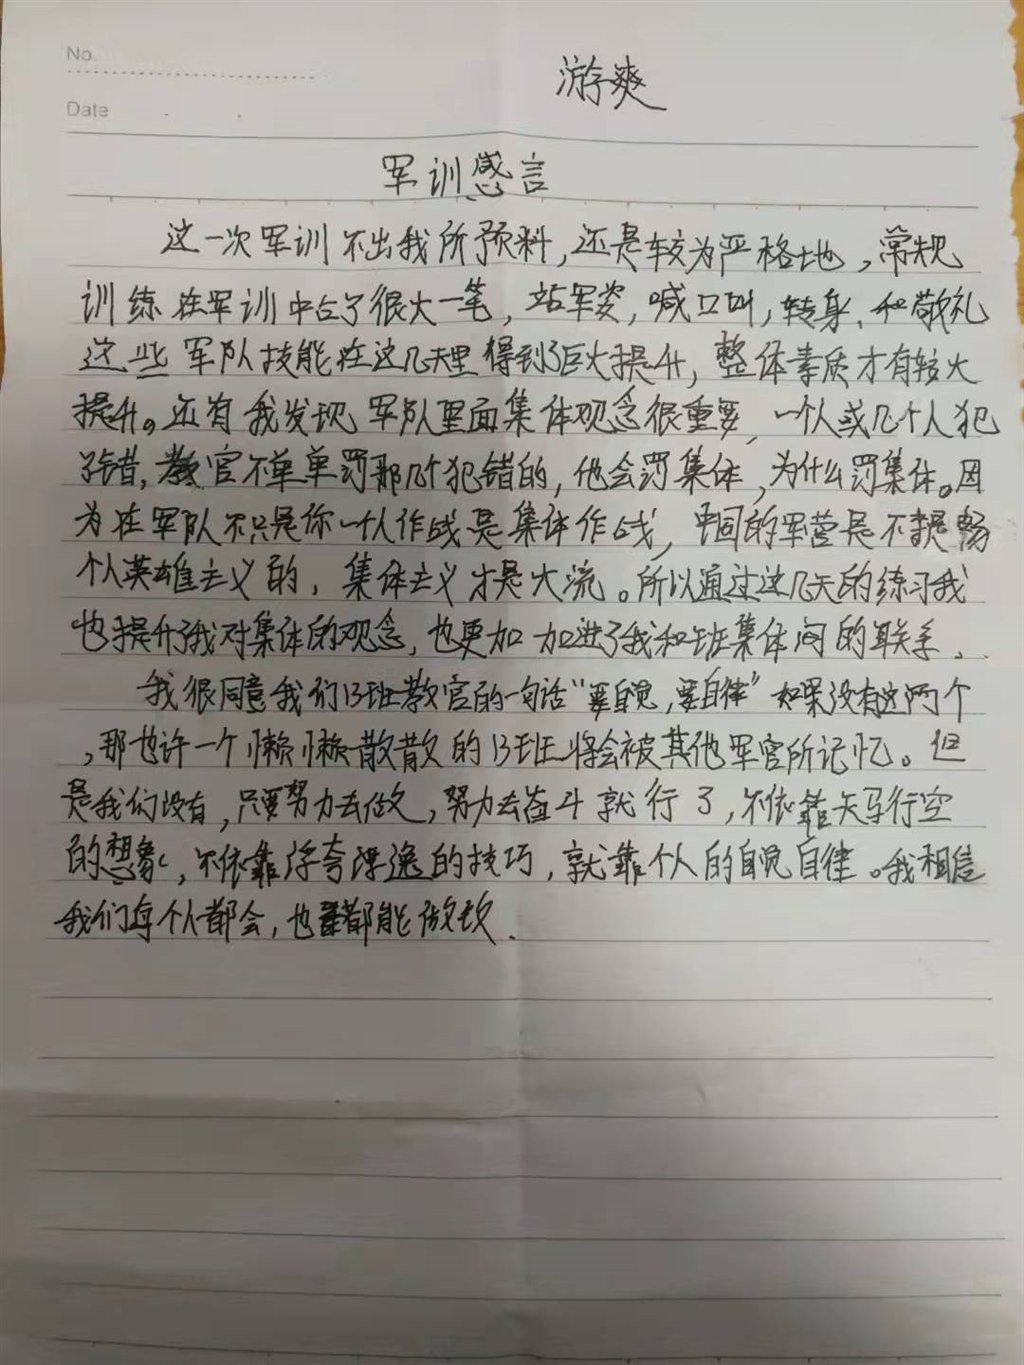 No.
游爽
Date
军训感言
这一次军训不出我所预料，还是较为严格地，常规
训练在军训中占了很大一笔，站军姿，喊口叫，转身、和敬礼
这些军队技能在这几天里得到了巨大提升，整体素质才有较大
提升。还有我发现军队里面集体观念很重要，一个人或几个人犯
了错，教官不单单罚那几个犯错的，他会罚集体，为什么罚集体。因
为在军队不只是你一个人作战是集体作战，中国的军营是不提畅
个人英雄主义的，集体主义才是大流。所以通过这几天的练习我
也提升了我对集体的观念，也更加加进了我和班集体间的联系．
我很同意我们13班教官的一句话“要自觉，要自律”如果没有这两个
，那也许一个懒懒散散的13班将会被其他军官所记忆。但
是我们没有，只要努力去做，努力去奋斗就行了，不依靠天马行空
的想象，不依靠浮夸漂逸的技巧，就靠个人的自觉自律。我相信
我们每个人都会，也都能做致．